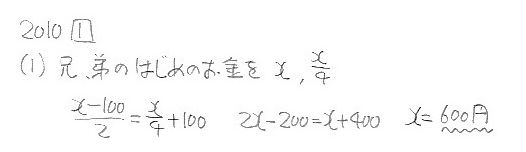 2010 1
(1) 兄、弟のはじめのお金を x, x/4
(x-100)/2 = x/4 + 100 2x-200=x+400 x= 600円